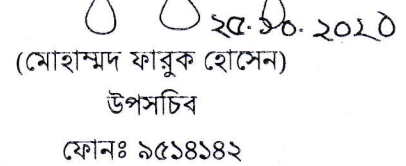 ২৫.১০.২০২০
(মোহাম্মদ ফারুক হোসেন)
উপসচিব
ফোনঃ ৯৫১৪১৪২